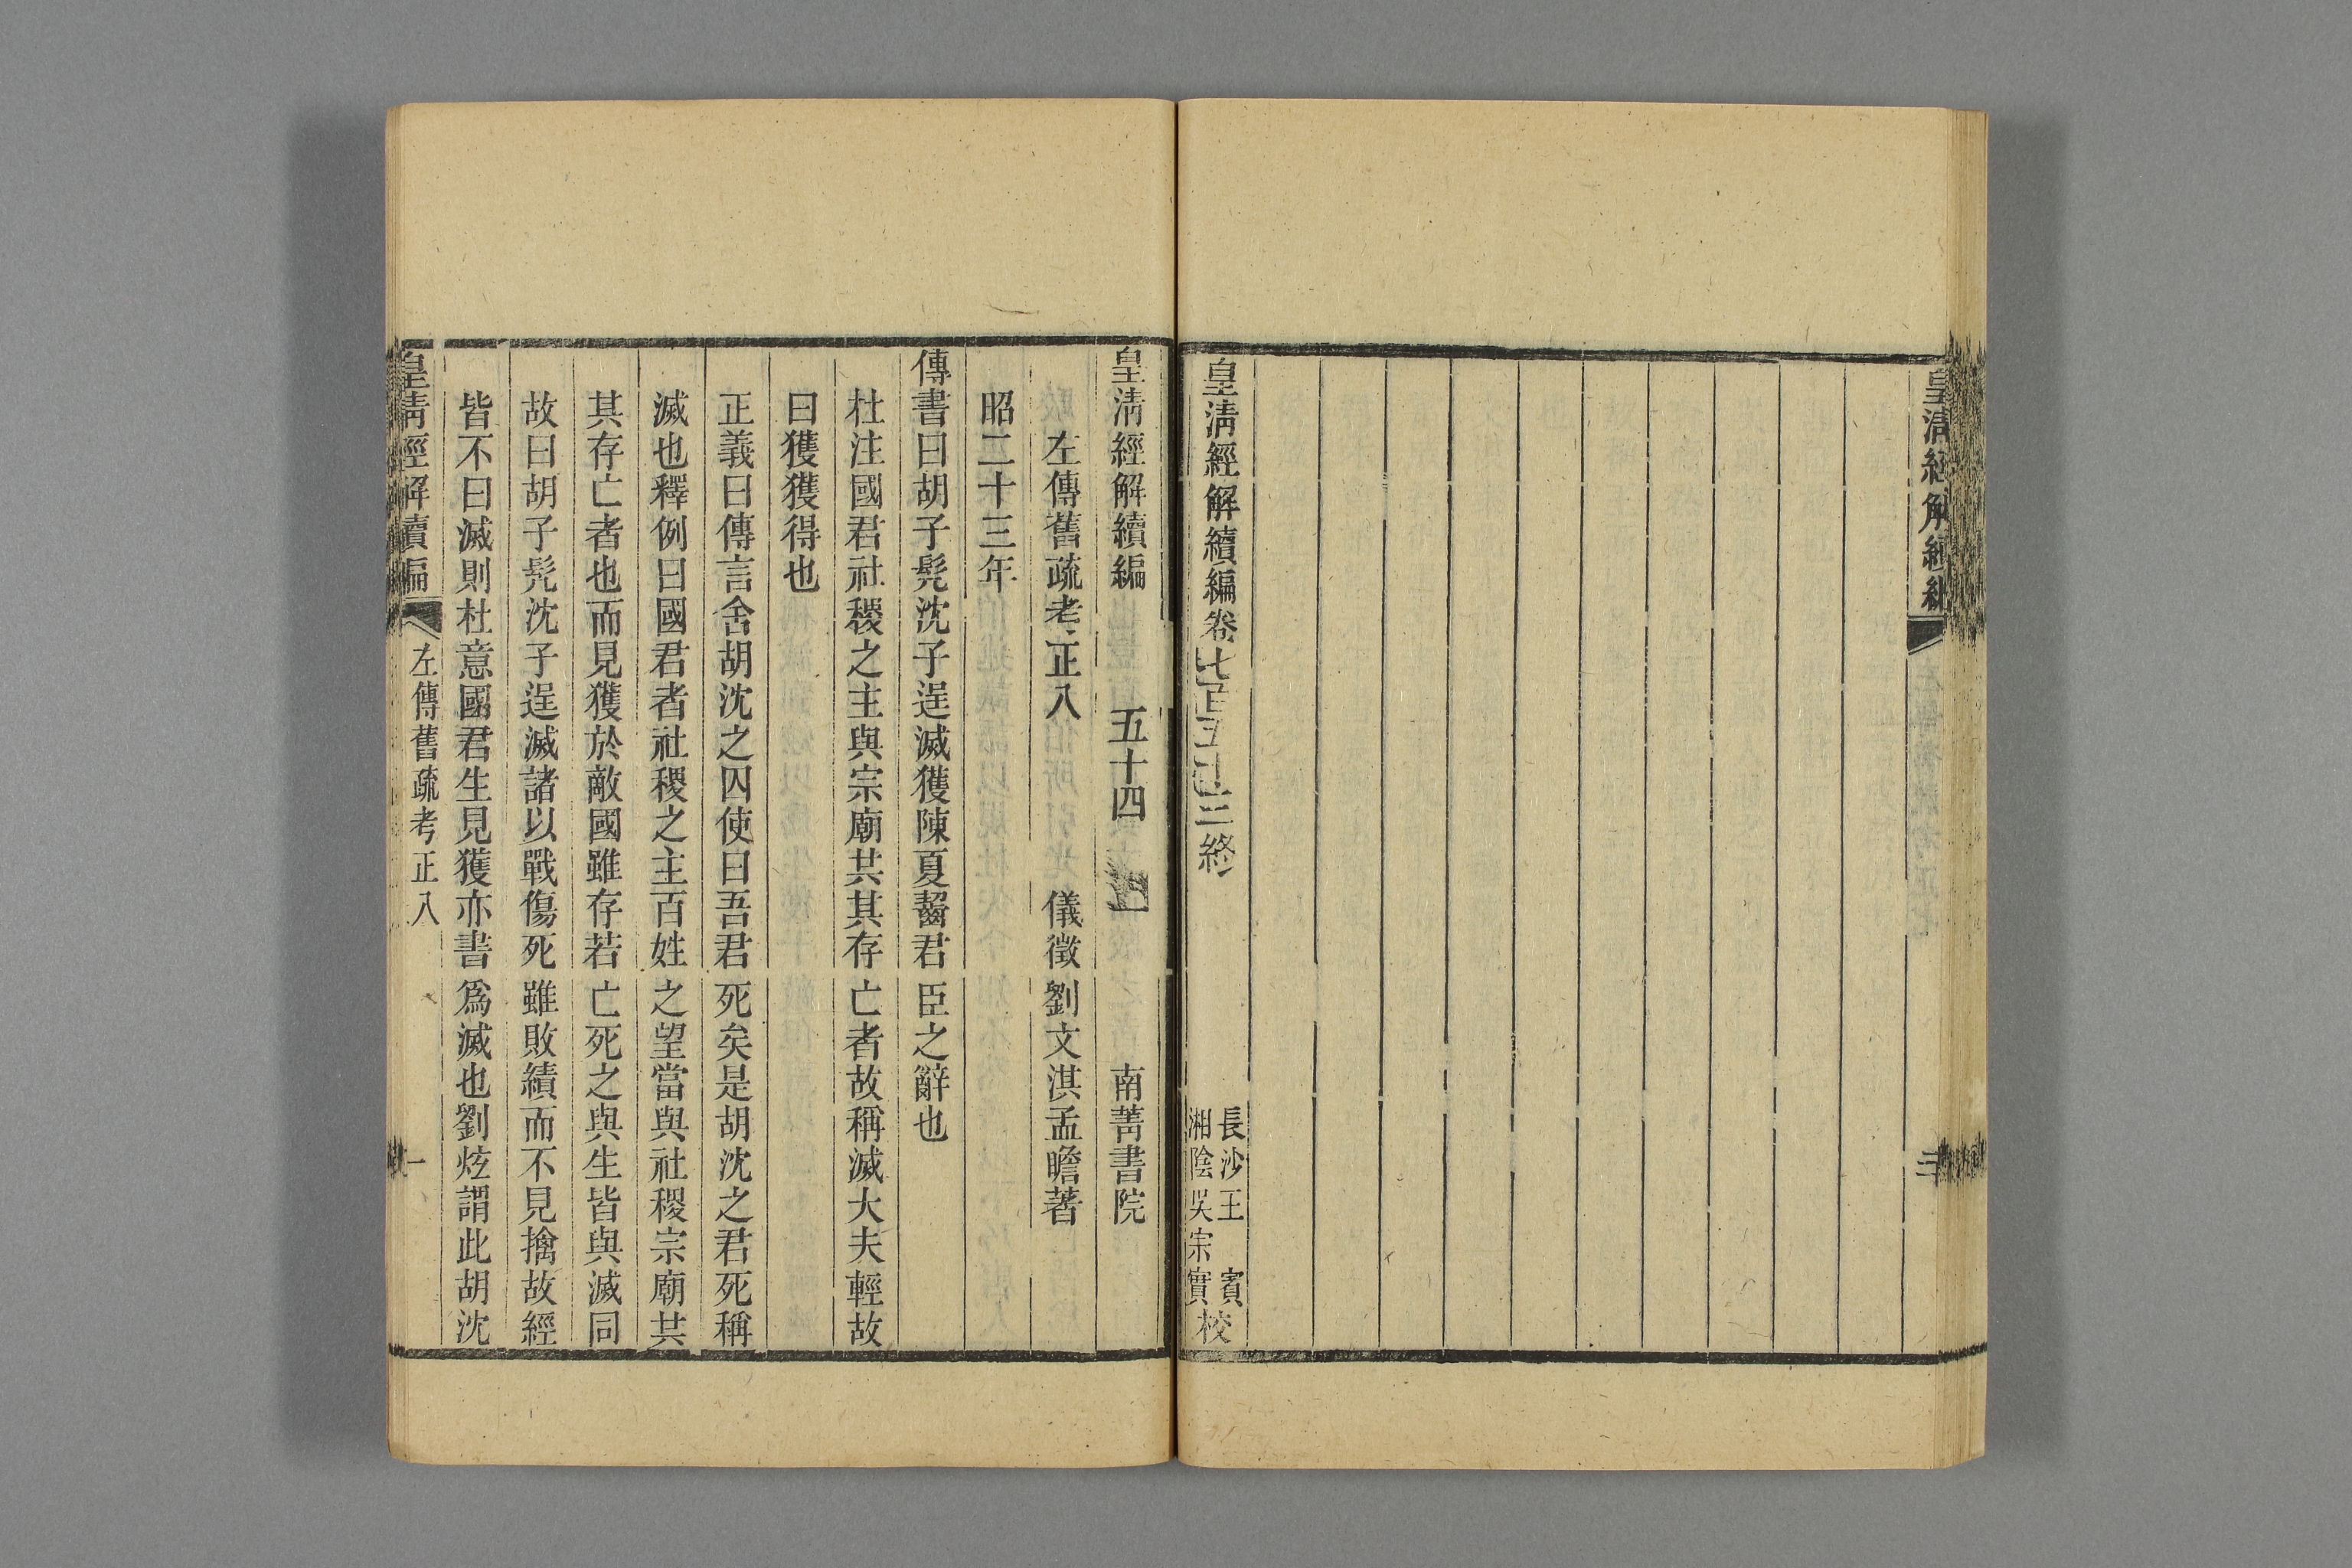 皇清經解續編
皇清經解續編卷七百五十三終
長沙王 賓
湘陰吳宗實
校
皇清經解續編 五十四 南菁書院
左傳舊疏考正八 儀徵劉文淇孟瞻著
昭二十三年
傳書曰胡子髡沈子逞滅獲陳夏齧君臣之辭也
杜注國君社稷之主與宗廟共其存亡者故稱滅大夫輕故
曰獲獲得也
正義曰傳言舍胡沈之囚使曰吾君死矣是胡沈之君死稱
滅也釋例曰國君者社稷之主百姓之望當與社稷宗廟共
其存亡者也而見獲於敵國雖存若亡死之與生皆與滅同
故曰胡子髡沈子逞滅諸以戰傷死雖敗績而不見擒故經
皆不曰滅則杜意國君生見獲亦書爲滅也劉炫謂此胡沈
皇清經解續編 左傳舊疏考正八 一